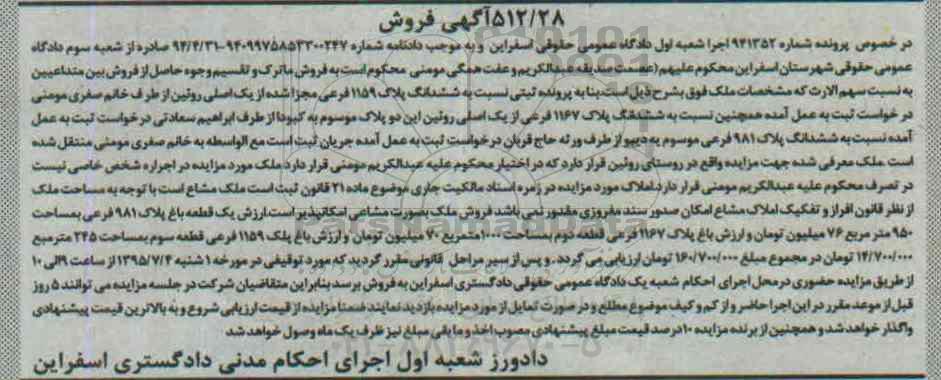 ۵۱۲/۲۸آگهی فروش
در خصوص پرونده شماره ۹۴۱۳۵۲ اجرا شعبه اول دادگاه عمومی حقوقی اسفراین و به موجب دادنامه شماره ۹۴۰۹۹۷۵۸۵۳۳۰۰۲۴۷-۹۴/۴/۳۱ صادره از شعبه سوم دادگاه
عمومی حقوقی شهرستان اسفراین محکوم علیهم (عصمت صدیقه عبدالکریم و عفت همگی مومنی محکوم است به فروش ماترک و تقسیم وجوه حاصل از فروش بین متداعیین
به نسبت سهم الارث که مشخصات ملک فوق بشرح ذیل است بنا به پرونده ثبتی نسبت به ششدانگ پلاک ۱۱۵۹ فرعی مجزا شده از یک اصلی روئین از طرف خانم صغری مومنی
در خواست ثبت به عمل آمده همچنین نسبت به ششدانگ پلاک ۱۱۶۷ فرعی از یک اصلی روئین این دو پلاک موسوم به کبودا از طرف ابراهیم سعادتی درخواست ثبت به عمل
آمده نسبت به ششدانگ پلاک ۹۸۱ فرعی موسوم به دیبو از طرف ورثه حاج قربان درخواست ثبت به عمل آمده جریان ثبت است مع الواسطه به خانم صغری مومنی منتقل شده
است .ملک معرفی شده جهت مزایده واقع در روستای روئین قرار دارد که در اختیار محکوم علیه عبدالکریم مومنی قرار دارد.ملک مورد مزایده در اجراره شخص خاصی نیست
در تصرف محکوم علیه عبدالکریم مومنی قرار دارد.املاک مورد مزایده در زمره اسناد مالکیت جاری موضوع ماده ۲۱ قانون ثبت است ملک مشاع است با توجه به مساحت ملک
از نظر قانون افراز و تفکیک املاک مشاع امکان صدور سند مفروزی مقدور نمی باشد فروش ملک بصورت مشاعی امکانپذیر است.ارزش یک قطعه باغ پلاک ۹۸۱ فرعی بمساحت
۹۵۰ متر مربع ۷۶ میلیون تومان و ارزش باغ پلاک ۱۱۶۷ فرعی قطعه دوم بمساحت ۱۰۰۰متمربع ۷۰ میلیون تومان و ارزش باغ پلک ۱۱۵۹ فرعی قطعه سوم بمساحت ۲۴۵ مترمبع
۱۴/۷۰۰/۰۰۰ تومان در مجموع مبلغ ۱۶۰/۷۰۰/۰۰۰ تومان ارزیابی می گردد .و پس از سیر مراحل قانونی مقرر گردید که مورد توقیفی در مورخه ۱شنبه ۱۳۹۵/۷/۴ از ساعت ۹الی ۱۰
از طریق مزایده حضوری در محل اجرای احکام شعبه یک دادگاه عمومی حقوقی دادگستری اسفراین به فروش برسد بنابراین متقاضیان شرکت در جلسه مزایده می توانند ۵ روز
قبل از موعد مقرر در این اجرا حاضر و از کم و کیف موضوع مطلع و در صورت تمایل از مورد مزایده بازدید نمایند ضمنا مزایده از قیمت ارزیابی شروع و به بالاترین قیمت پیشنهادی
واگذار خواهد شد و همچنین از برنده مزایده ۱۰درصد قیمت مبلغ پیشنهادی مصوب اخذ و مابقی مبلغ نیز ظرف یک ماه وصول خواهد شد
دادورز شعبه اول اجرای احکام مدنی دادگستری اسفراین